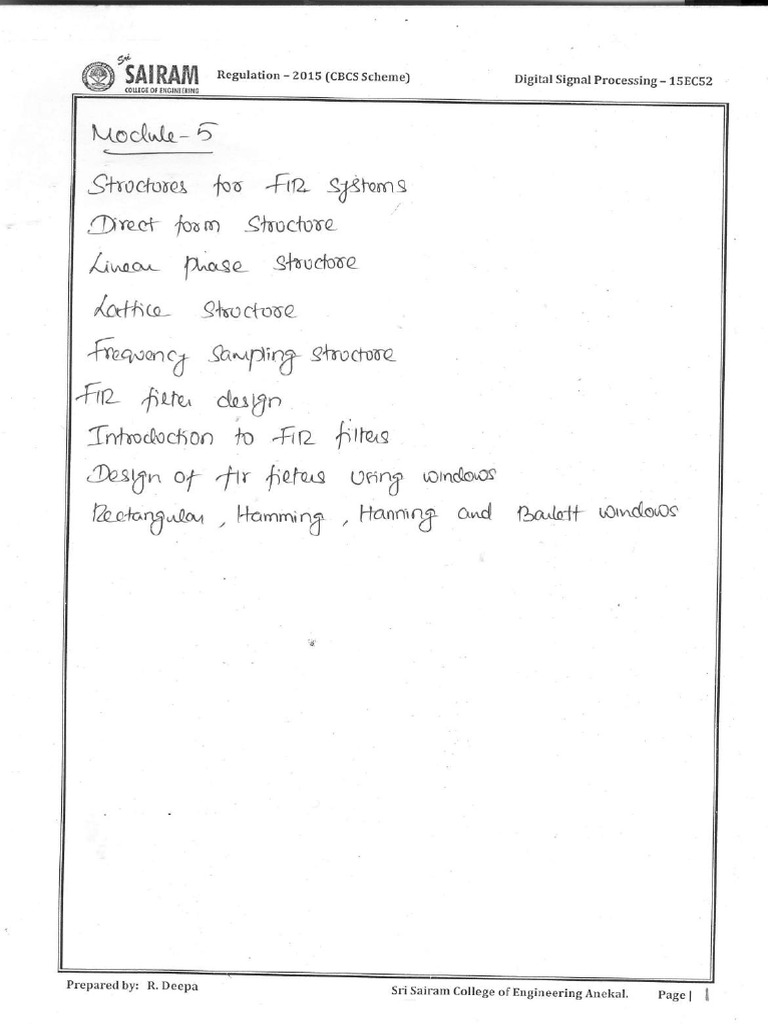 Sri
SAIRAM
COLLEGE OF ENGINEERING
Regulation – 2015 (CBCS Scheme)
Digital Signal Processing – 15EC52
Module-5
Structures for FIR systems
Direct form Structure
Linear phase structure
Lattice structure
Frequency sampling structure
FIR filter design
Introduction to FIR filters
Design of fir filters using windows
Rectangular, Hamming, Hanning and Barlett windows
Prepared by: R. Deepa
Sri Sairam College of Engineering Anekal.
Page | 1